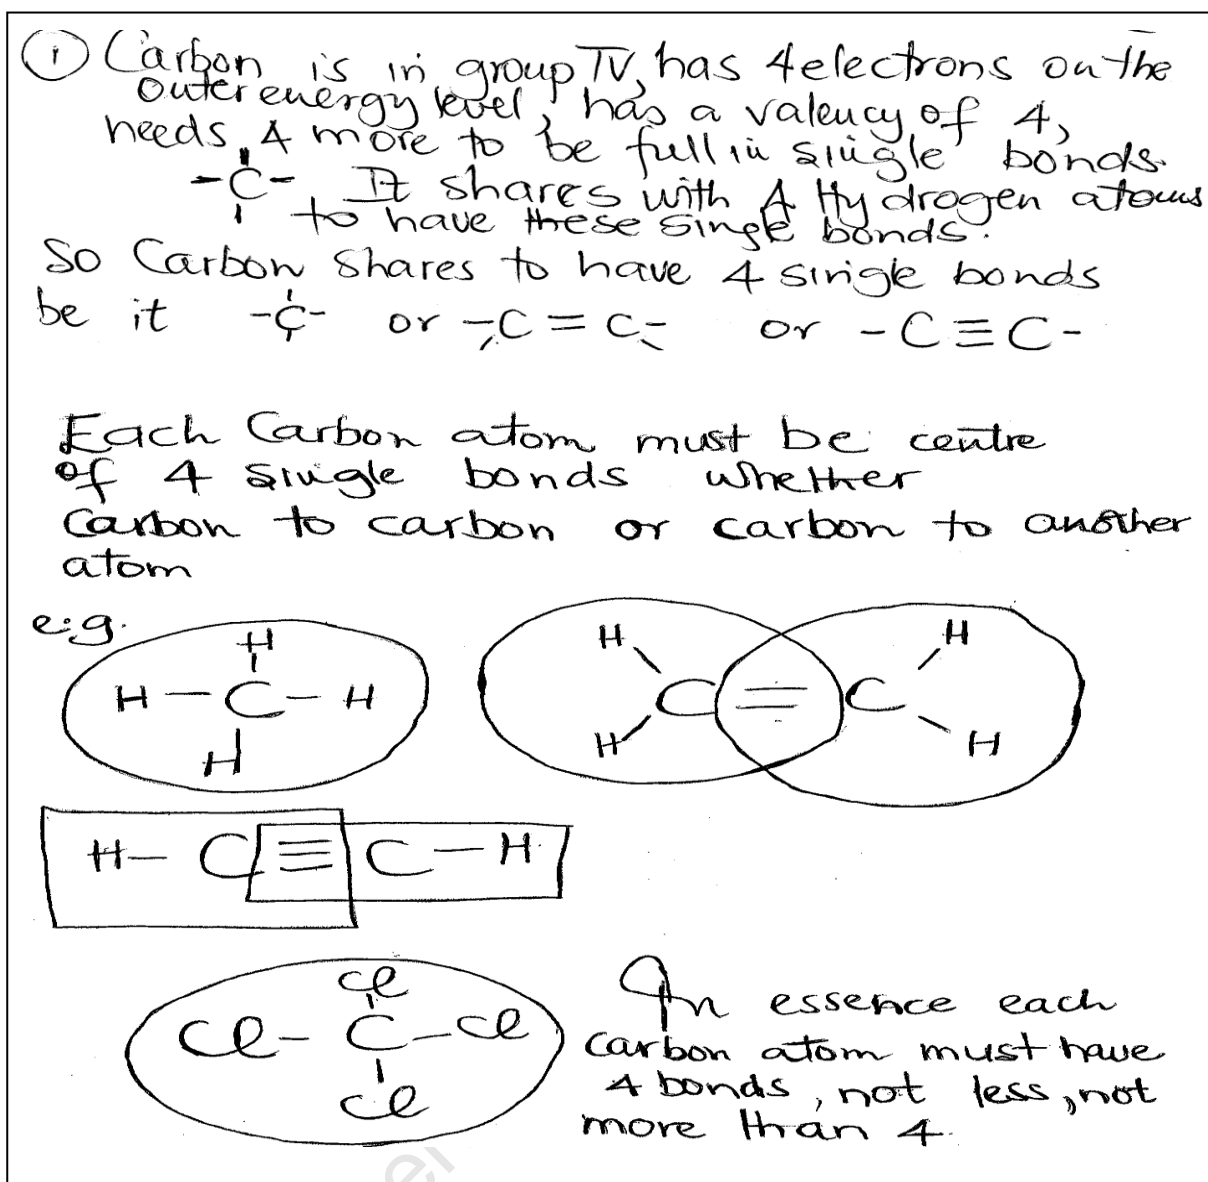 ① Carbon is in group IV, has 4 electrons on the
outer energy level, has a valency of 4,
needs 4 more to be full in single bonds.
-C- It shares with 4 Hydrogen atoms
to have these single bonds.
So Carbon shares to have 4 single bonds
be it -C- or -C=C- or -C≡C-
Each Carbon atom must be centre
of 4 single bonds whether
Carbon to carbon or carbon to another
atom
e.g.
H
H — C — H
H
H H
C = C
H H
H — C ≡ C — H
Cl
Cl - C - Cl
Cl
In essence each
carbon atom must have
4 bonds, not less, not
more than 4.